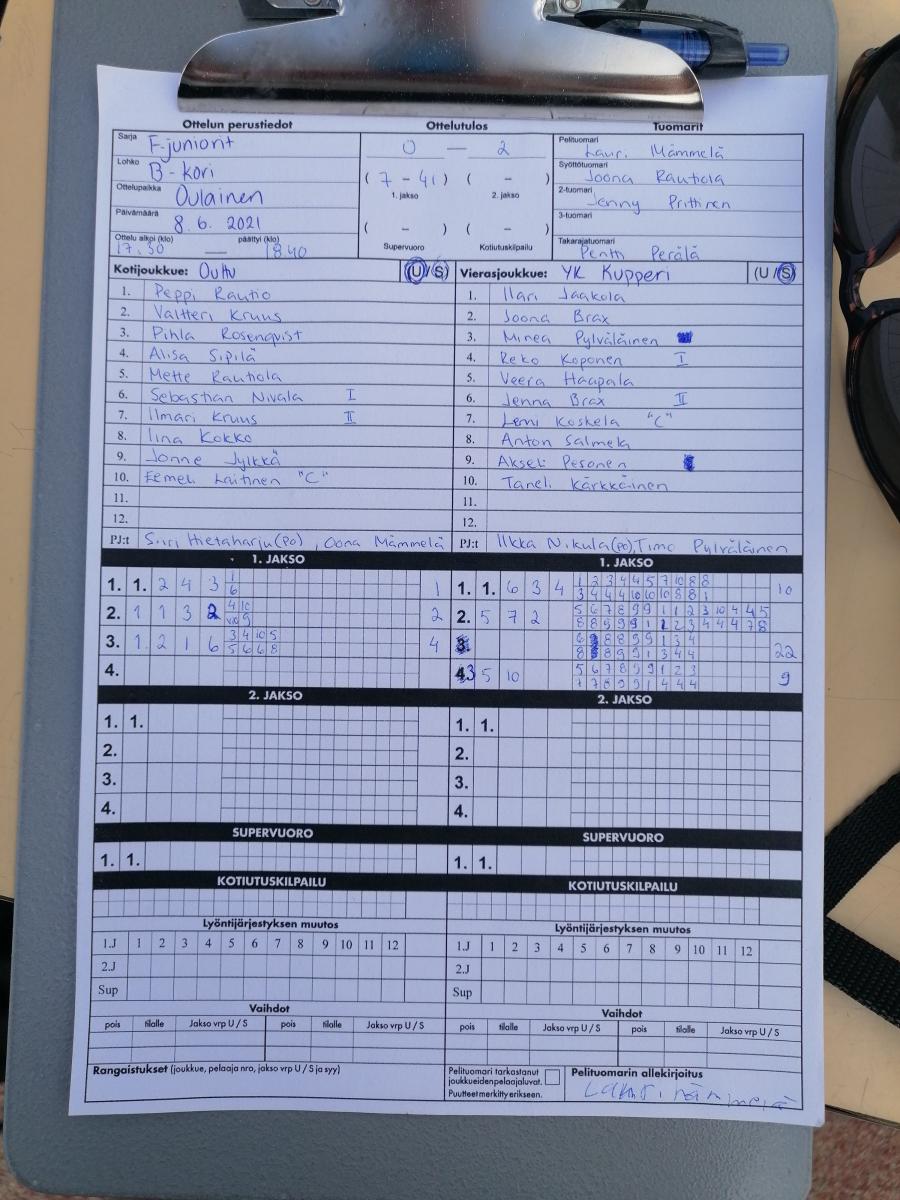 Ottelun perustiedot
Ottelutulos
Tuomarit
Sarja F-juniorit
Lohko B-kori
Ottelupaikka Oulainen
Päivämäärä 8.6. 2021
Ottelu alkoi (klo) päättyi (klo)
17.30 — 18.40
0 — 2
(7 - 41) ( - )
1. jakso 2. jakso
( - ) ( - )
Supervuoro Kotiutuskilpailu
Pelituomari Lauri Mämmelä
Syöttötuomari Joona Rautiola
2-tuomari Jenny
3-tuomari
Takarajatuomari Pentti Perälä
Kotijoukkue: Oulu (U/S)
1. Peppi Rautio
2. Valtteri Kruus
3. Pihla Rosenqvist
4. Alisa Sipilä
5. Mette Rautiola
6. Sebastian Nivala I
7. Ilmari Kruus II
8. Iina Kokko
9. Jonne Jylkkä
10. Eemeli Laitinen "C"
11.
12.
PJ:t Siiri Hietaharju (PO), Oona Mämmelä
Vierasjoukkue: YK Kupperi (U/S)
1. Ilari Jaakola
2. Joona Brax
3. Minea Pylväläinen
4. Reko Koponen I
5. Veera Haapala
6. Jenna Brax II
7. Lemi Koskela "C"
8. Anton Salmela
9. Akseli Pesonen
10. Taneli Kärkkäinen
11.
12.
PJ:t Ilkka Nikula (PO), Timo Pylväläinen
1. JAKSO
1. 1. 2 4 3 1 1
6
2. 1 1 3 2 4 10 2
9
3. 1 2 1 6 3 4 10 5 4
5 6 6 8
4.
1. JAKSO
1. 1. 6 3 4 1 2 3 4 4 5 7 10 8 8 10
3 4 4 4 10 10 10 8 8 1
2. 5 7 2 5 6 7 8 9 9 1 1 2 3 10 4 4 5
8 8 9 9 9 1 1 2 2 3 4 4 4 7 8
3. 8 8 9 9 1 3 4 22
8 8 9 9 1 3 4 4
4. 3 5 10 5 6 7 8 9 9 1 2 3 9
7 7 8 9 9 1 4 4 4
2. JAKSO
1. 1.
2.
3.
4.
2. JAKSO
1. 1.
2.
3.
4.
SUPERVUORO
1. 1.
SUPERVUORO
1. 1.
KOTIUTUSKILPAILU
KOTIUTUSKILPAILU
Lyöntijärjestyksen muutos
1.J 1 2 3 4 5 6 7 8 9 10 11 12
2.J
Sup
Lyöntijärjestyksen muutos
1.J 1 2 3 4 5 6 7 8 9 10 11 12
2.J
Sup
Vaihdot
pois tilalle Jakso vrp U / S pois tilalle Jakso vrp U / S
Vaihdot
pois tilalle Jakso vrp U / S pois tilalle Jakso vrp U / S
Rangaistukset (joukkue, pelaaja nro, jakso vrp U / S ja syy)
Pelituomari tarkastanut
joukkueidenpelaajaluvat.
Puutteet merkitty erikseen.
Pelituomarin allekirjoitus
Lauri Mämmelä